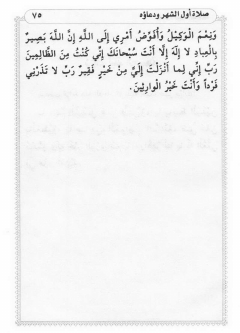 صلاة أول الشهر ودعاؤه
٧٥
وَنِعْمَ الْوَكِيْلُ وَأُفَوِّضُ أَمْرِي إِلَى اللَّهِ إِنَّ اللَّهَ بَصِيرٌ
بِالْعِبادِ لا إِلَهَ إِلَّا أَنْتَ سُبْحانَكَ إِنِّي كُنْتُ مِنَ الظَّالِمِينَ
رَبِّ إِنِّي لِما أَنْزَلْتَ إِلَيَّ مِنْ خَيْرٍ فَقِيرٌ رَبِّ لا تَذَرْنِي
فَرْداً وَأَنْتَ خَيْرُ الْوارِثِينَ.